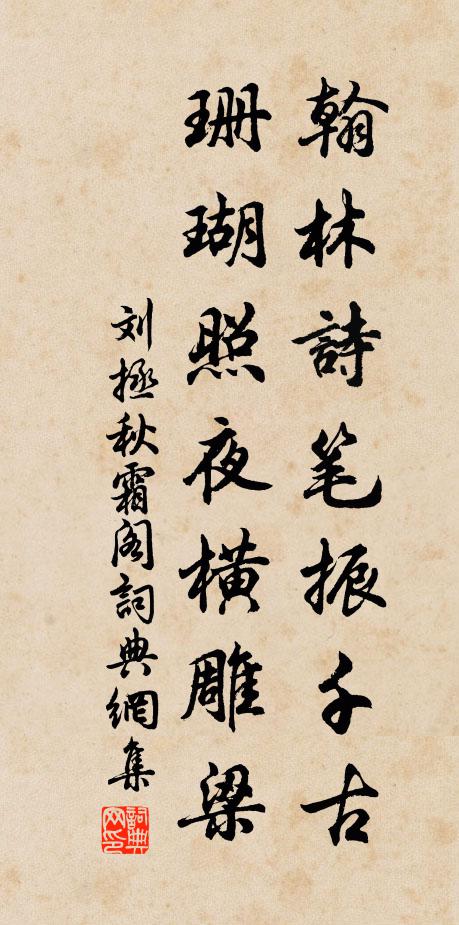 翰林詩笔振千古
珊瑚照夜橫雕梁
刘拯秋霜阁詞典網集
詞典网印